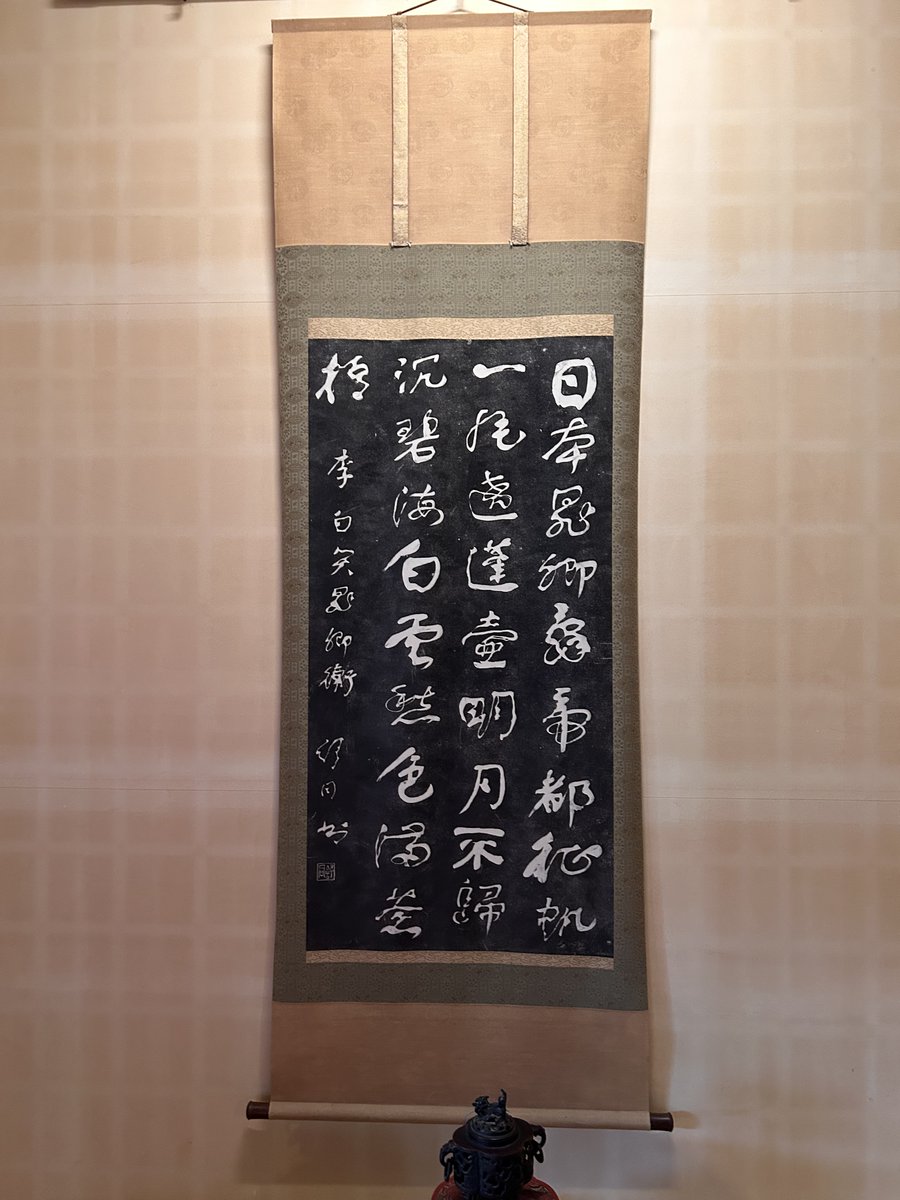 日本晁卿辭帝都征帆
一片遶蓬壺明月不歸
沉碧海白雲愁色滿蒼
梧
李白哭晁卿衡 舒同書